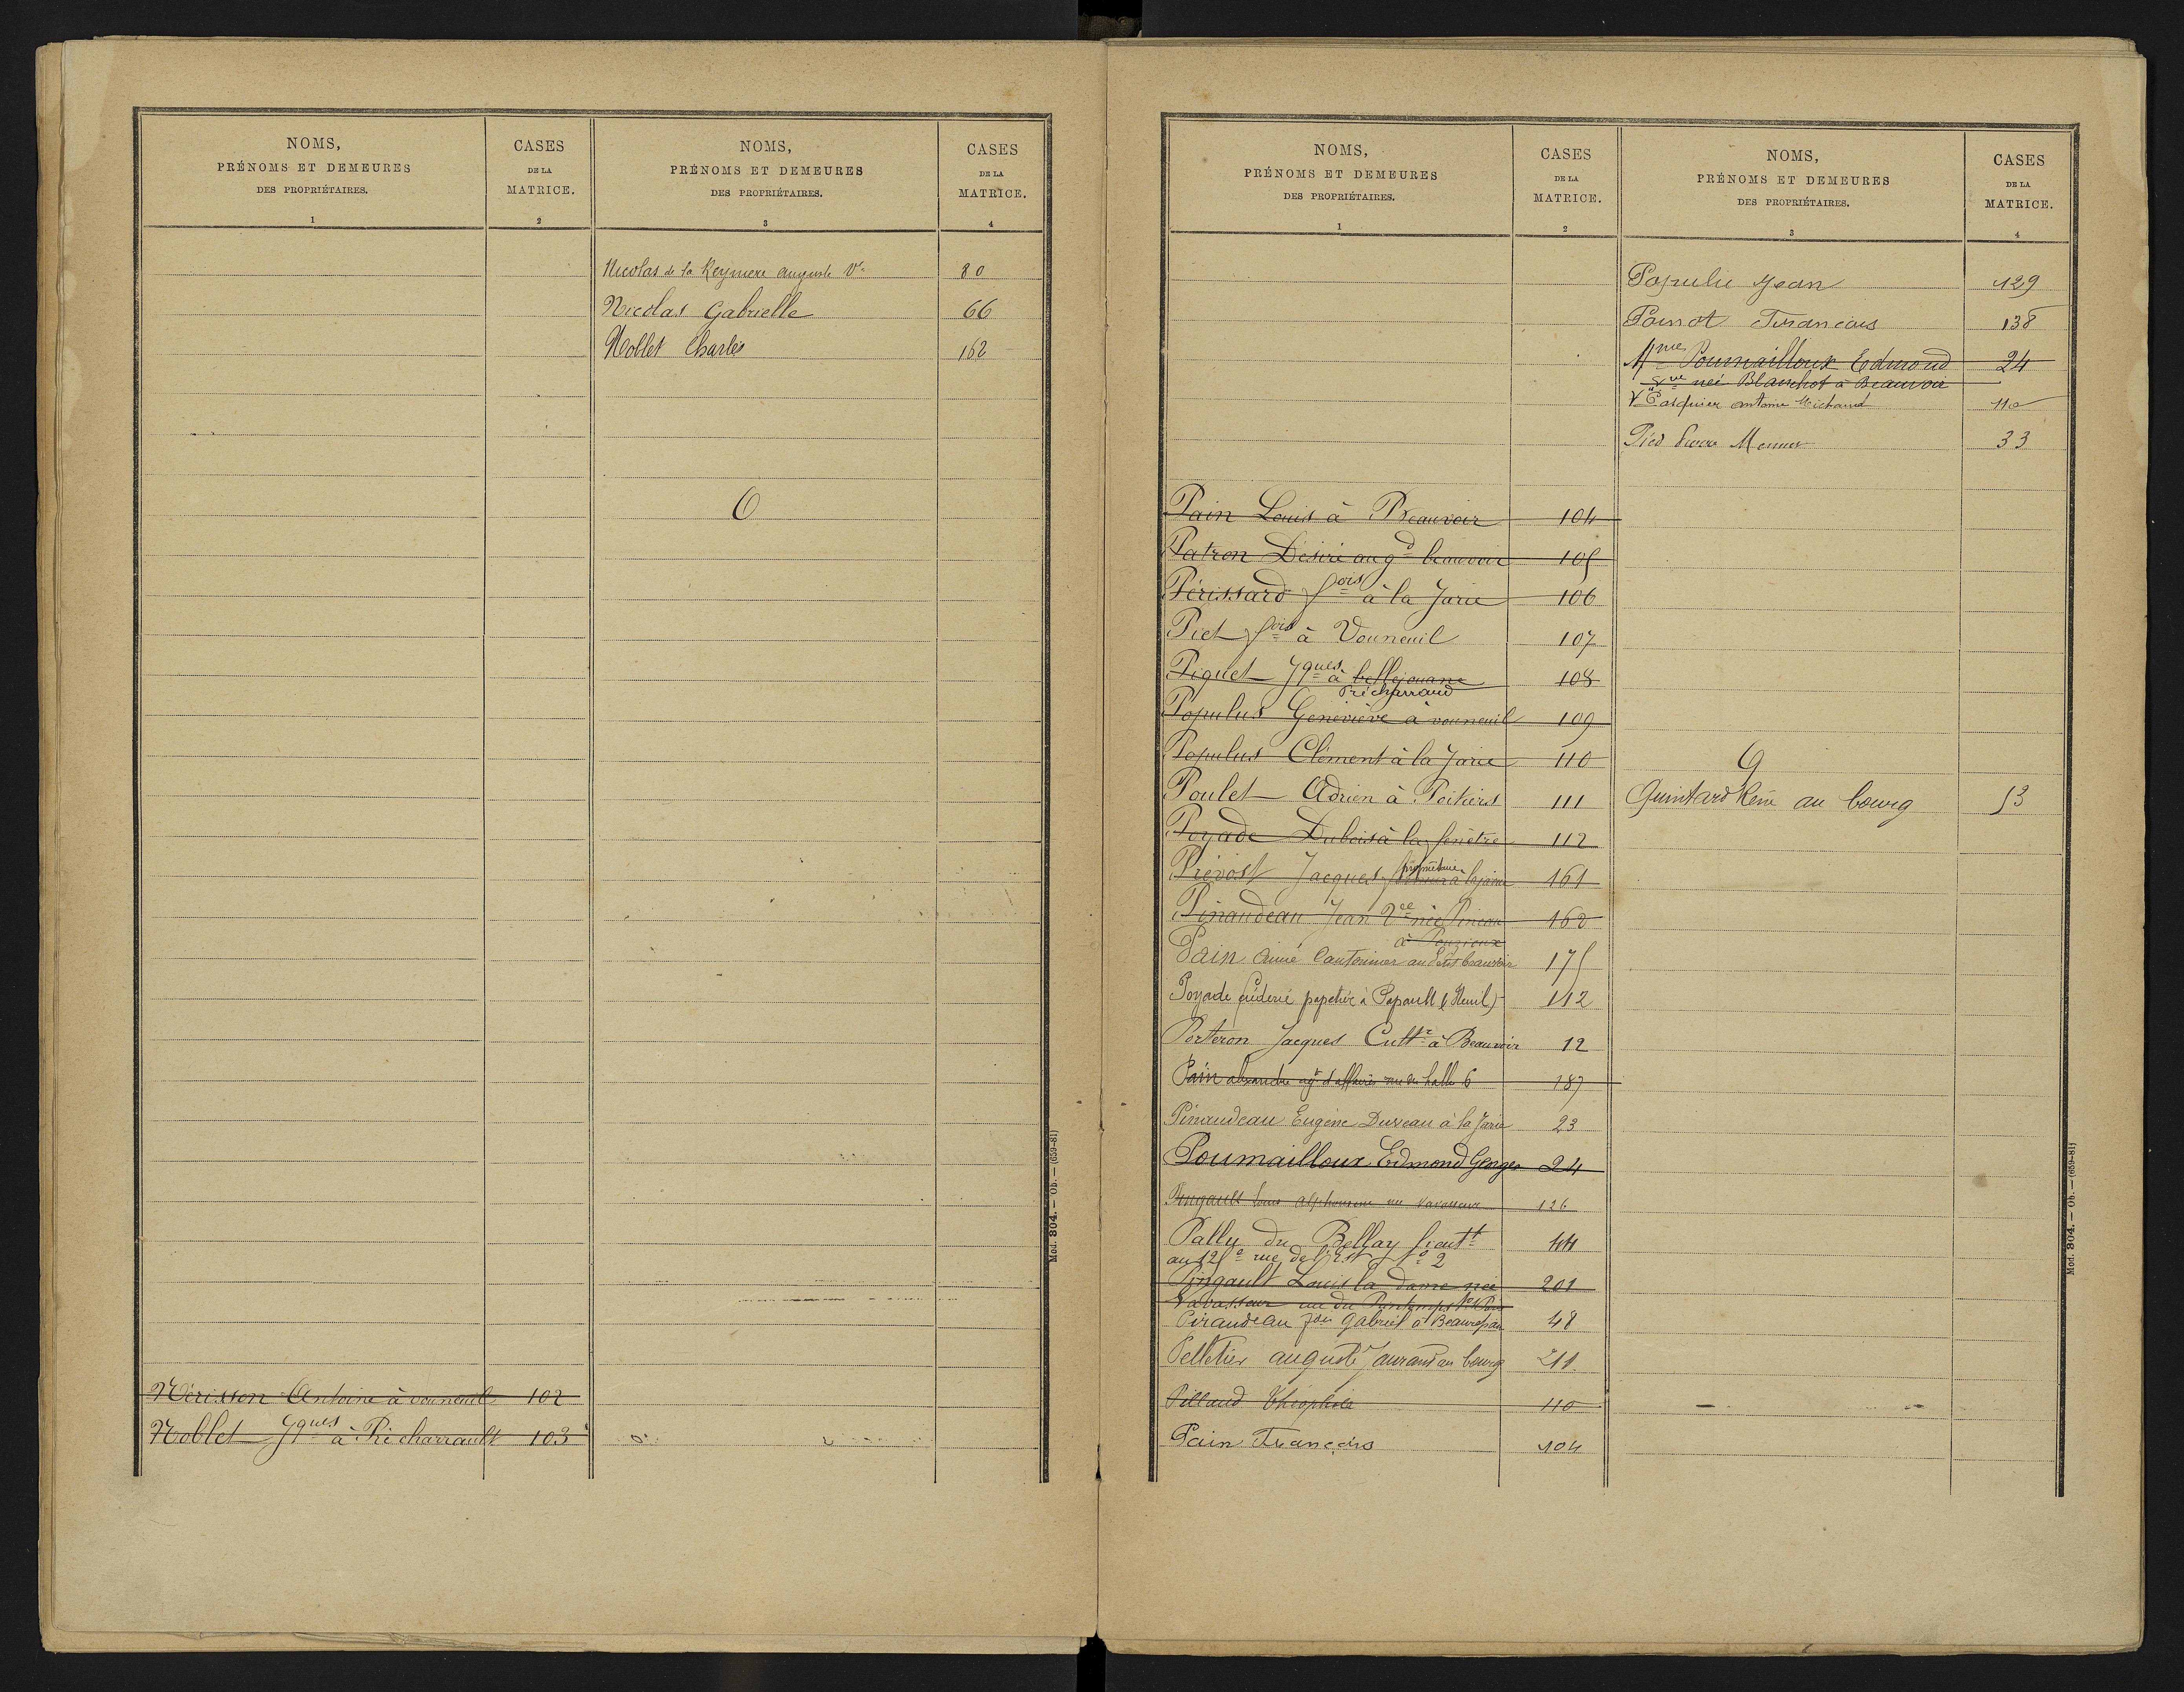 NOMS,
PRÉNOMS ET DEMEURES
DES PROPRIÉTAIRES.
1
CASES
DE LA
MATRICE.
2
NOMS,
PRÉNOMS ET DEMEURES
DES PROPRIÉTAIRES.
3
CASES
DE LA
MATRICE.
4
Nérisson Antoine à vouneuil 102
Noblet Jques à Précharrault 103
Nicolas de la Reyniere Auguste Ve 80
Nicolas Gabrielle 66
Noblet Charles 162
O
Mod. 804. — Ob. — (659-81)
NOMS,
PRÉNOMS ET DEMEURES
DES PROPRIÉTAIRES.
1
CASES
DE LA
MATRICE.
2
NOMS,
PRÉNOMS ET DEMEURES
DES PROPRIÉTAIRES.
3
CASES
DE LA
MATRICE.
4
Pain Louis à Beauvoir 104
Patron Désiré au gd beauvoir 105
Périssard fois à la Jarie 106
Piet fois à Vouneuil 107
Piquet Jques à bellejouane 108
Précharraud
Populus Geneviève à vouneuil 109
Populus Clément à la Jarie 110
Poulet Adrien à Poitiers 111
Poyade Dubois à la fenêtre 112
Prévost Jacques propriétaire à la jarie 161
Pinaudeau Jean Vve née Pineau 162
à
Pain Aimé Cantonnier au Petit beauvoir 175
Poyade fréderic papetier à 112
Porteron Jacques Cultr à Beauvoir 12
Pain alexandre agt d'affaires rue des halles 6 187
Pinaudeau Eugène Duzeau à la Jarie 23
Poumailloux Edmond Georges 24
Pingault Louis Alphonsine née Vavasseur 126
Pally du Bellay lieutt 44
au 125e rue de l'Est No 2
Pingault Louis la dame née 201
Vavasseur rue du Printemps
Piraudeau fois Gabriel à Beaurepaire 48
Pelletier auguste Jaurand au bourg 211
Pillaud Théophile 110
Pain François 104
Populu Jean 129
Poinot François 138
Mme Poumailloux Edmond 24
Vve née Blanchot à Beauvoir
Ve Pasquier Antoine Michaud 110
Pied Pierre 33
Q
Quintard René au bourg 53
Mod. 804. — Ob. — (659-81)